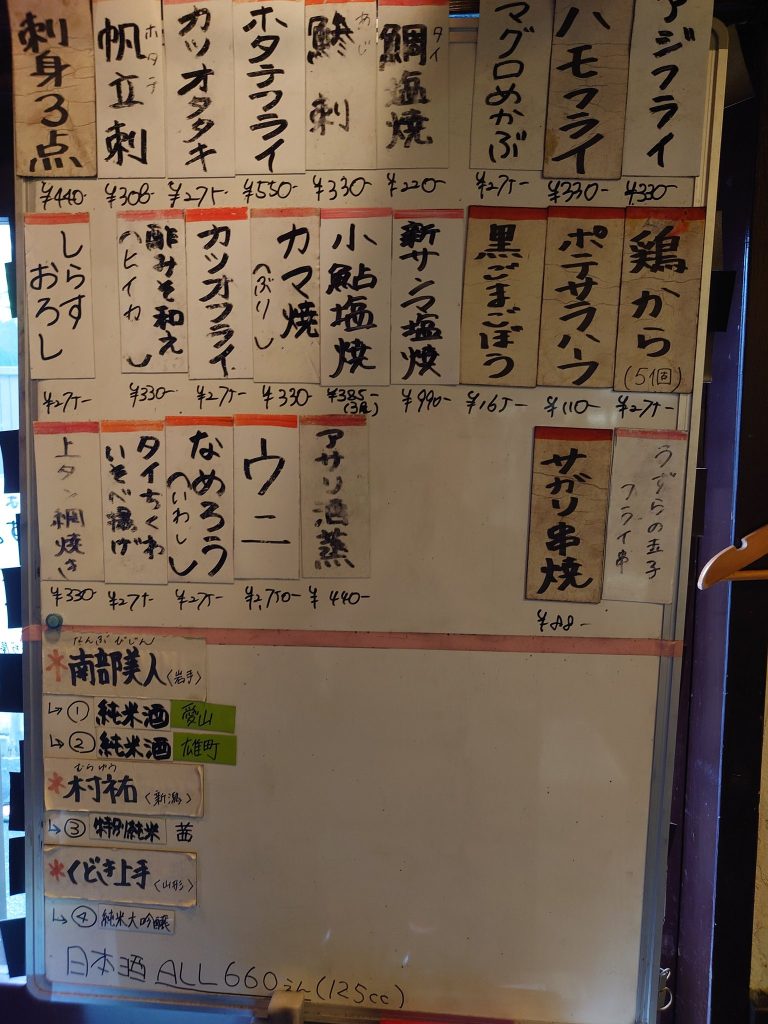 アジフライ
¥330-
ハモフライ
¥330-
マグロめかぶ
¥275-
鯛塩焼
タイ
¥220-
鯵刺
あじ
¥330-
ホタテフライ
¥550-
カツオタタキ
¥275-
帆立刺
ホタテ
¥308-
刺身3点
¥440-
鶏から
(5個)
¥275-
ポテサラハーフ
¥110-
黒ごまごぼう
¥165-
新サンマ塩焼
¥990-
小鮎塩焼
¥385-
カマ焼
へぶりし
¥330-
カツオフライ
¥275-
酢みそ和え
¥330-
しらす
おろし
¥275-
うずらの玉子
フライ串
サガリ串焼
¥88-
アサリ酒蒸
¥440-
ウニ
¥2,750-
なめろう
へいわしし
¥275-
タイちくわ
いそべ揚げ
¥275-
上タン網焼き
¥330-
なんぶびじん
*南部美人〈岩手〉
↳①純米酒 愛山
↳②純米酒 雄町
むらゆう
*村祐〈新潟〉
↳③特別純米 茜
*くどき上手〈山形〉
↳④純米大吟醸
日本酒 ALL660えん(125cc)